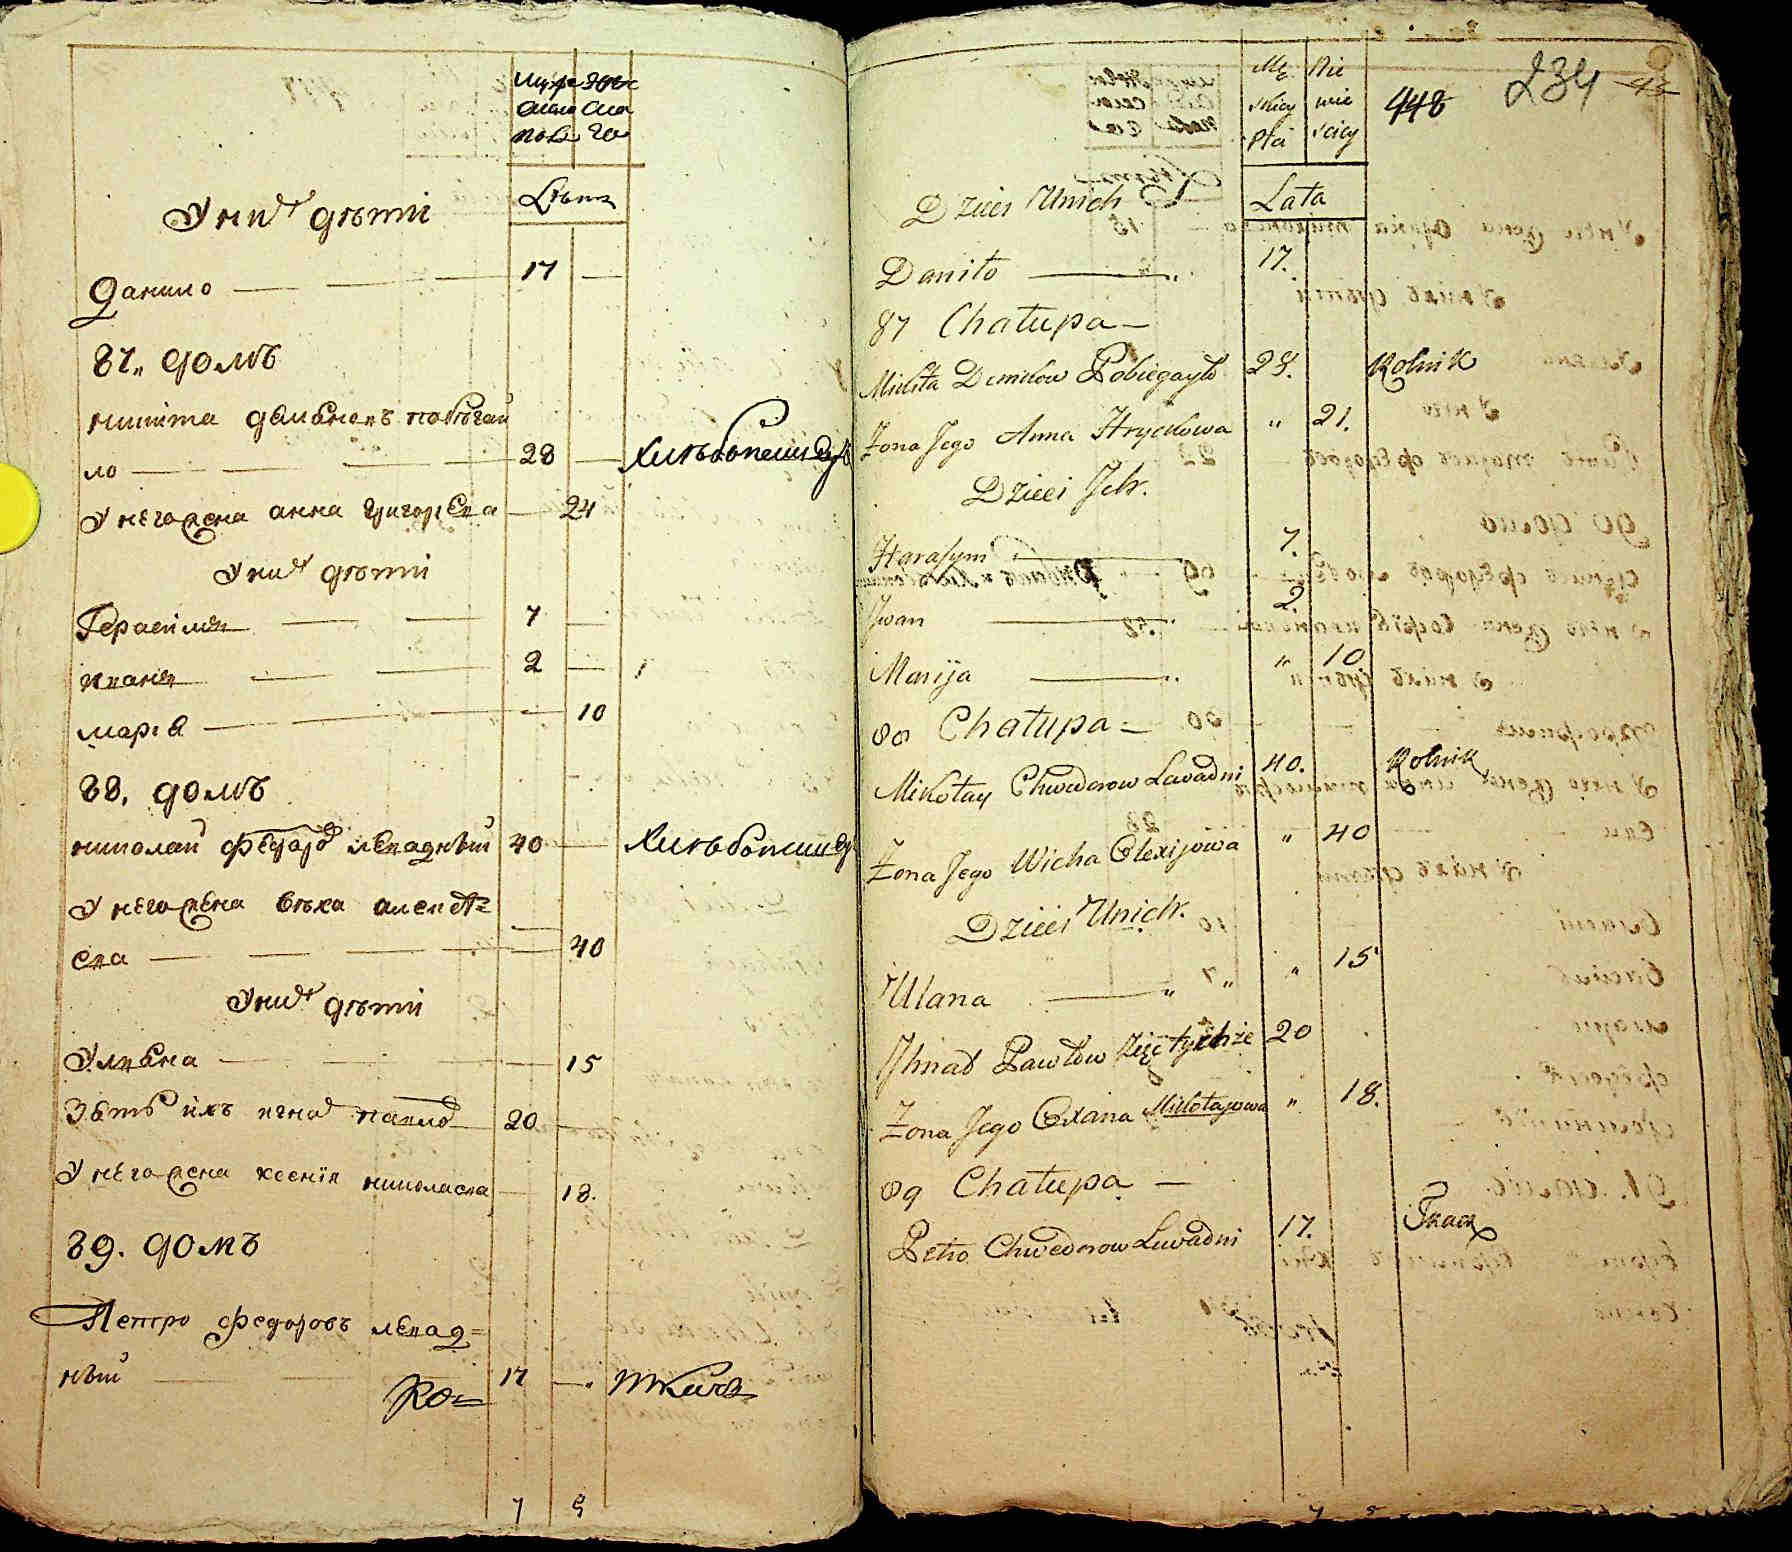 муже женс
скаго ска
пола го
Лѣта
У них дѣти
Данило 17
87. домъ
никита демьяновъ побѣгай
ло 28 Хлѣбопашецъ
У него жена анна григорьева 24
У них дѣти
Герасимъ 7
иванъ 2
марія 10
88. домъ
николай федоров левадный 40 Хлѣбопашецъ
У него жена вѣка алексѣ=
ева 40
У них дѣти
Ульяна 15
Зять ихъ игнат павлов 20
У него жена ксенія николаева 18.
89. домъ
Петро федоровъ левад=
ный 17 ткачъ
7 5
Mę Nie
skiey wie
płci sciey
448 234
Dzieci Unich Lata
Daniło 17.
87 Chałupa
Mikita Demidow Pobiegayło 28. Rolnik
Żona Jego Anna Hryckowa " 21.
Dzieci Ich.
Harasym 7.
Iwan 2
Marija " 10
88 Chałupa
Mikołay Chwedorow Lewadni 40. Rolnik
Żona Jego Wicha Olexijowa " 40
Dzieci Unich.
Ulana " 15
Ihnad Pawłow Zięć tychże 20
Żona Jego Oxana Mikołajowa " 18.
89 Chałupa
Petro Chwedorow Lewadni 17. Tkacz
7 5